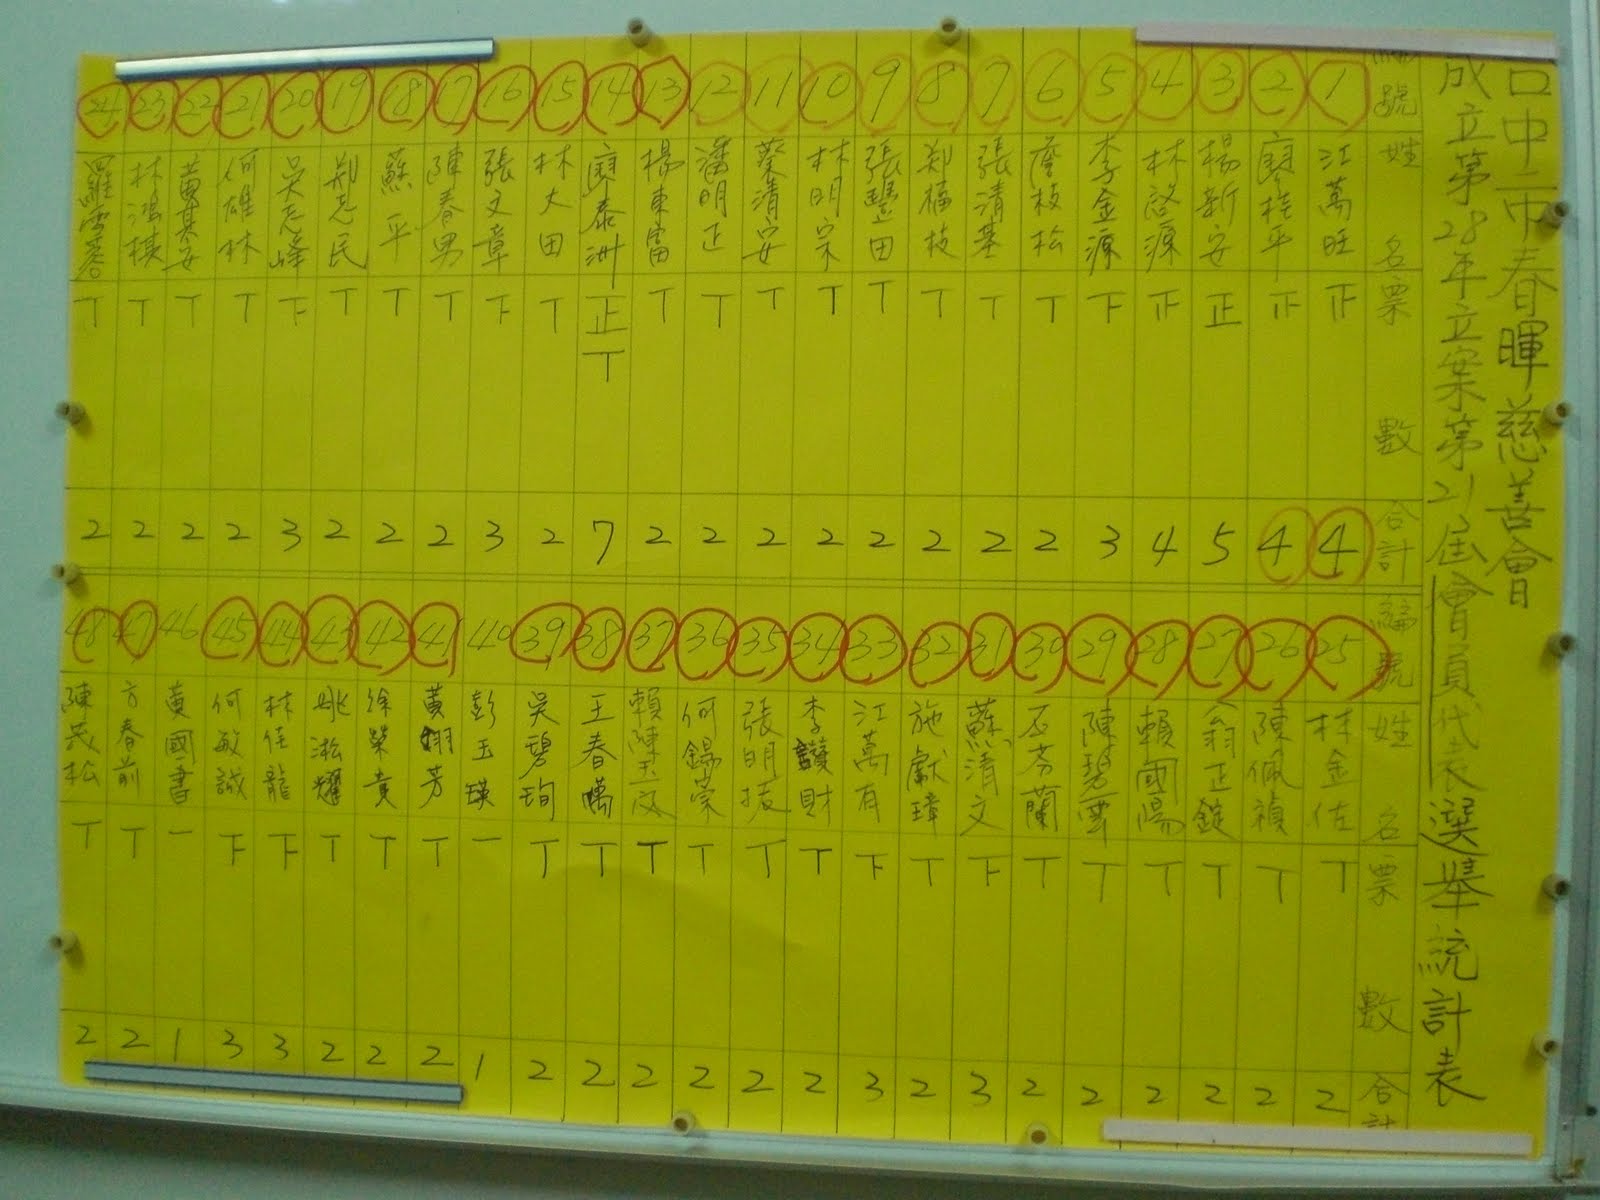 中市春暉慈善會
成立第28年立案第21屆會員代表選舉統計表
編號 姓名 票數 合計
1 江萬旺 正 4
2 廖桂平 正 4
3 楊新安 正 5
4 林啓源 正 4
5 李金源 下 3
6 詹枝松 丅 2
7 張清基 丅 2
8 鄭福枝 丅 2
9 張豐田 丅 2
10 林明宋 丅 2
11 蔡清安 丅 2
12 潘明正 丅 2
13 楊東富 丅 2
14 廖泰洲 正丅 7
15 林大田 丅 2
16 張文章 下 3
17 陳春男 丅 2
18 蘇平 丅 2
19 鄭志民 丅 2
20 吳志峰 下 3
21 何雄林 丅 2
22 黃其安 丅 2
23 林鴻棋 丅 2
24 羅雲 丅 2
編號 姓名 票數 合計
25 林金佐 丅 2
26 陳佩禎 丅 2
27 翁正錠 丅 2
28 賴國陽 丅 2
29 陳碧雲 丅 2
30 石芬蘭 丅 2
31 蘇清文 下 3
32 施獻璋 丅 2
33 江萬有 下 3
34 李讚財 丅 2
35 張明振 丅 2
36 何錫榮 丅 2
37 賴陳玉 丅 2
38 王春 丅 2
39 吳碧珣 丅 2
40 彭玉瑛 一 1
41 黃翊芳 丅 2
42 徐榮貴 丅 2
43 姚淞耀 丅 2
44 林佳龍 下 3
45 何敏誠 下 3
46 黃國書 一 1
47 方春前 丅 2
48 陳茂松 丅 2